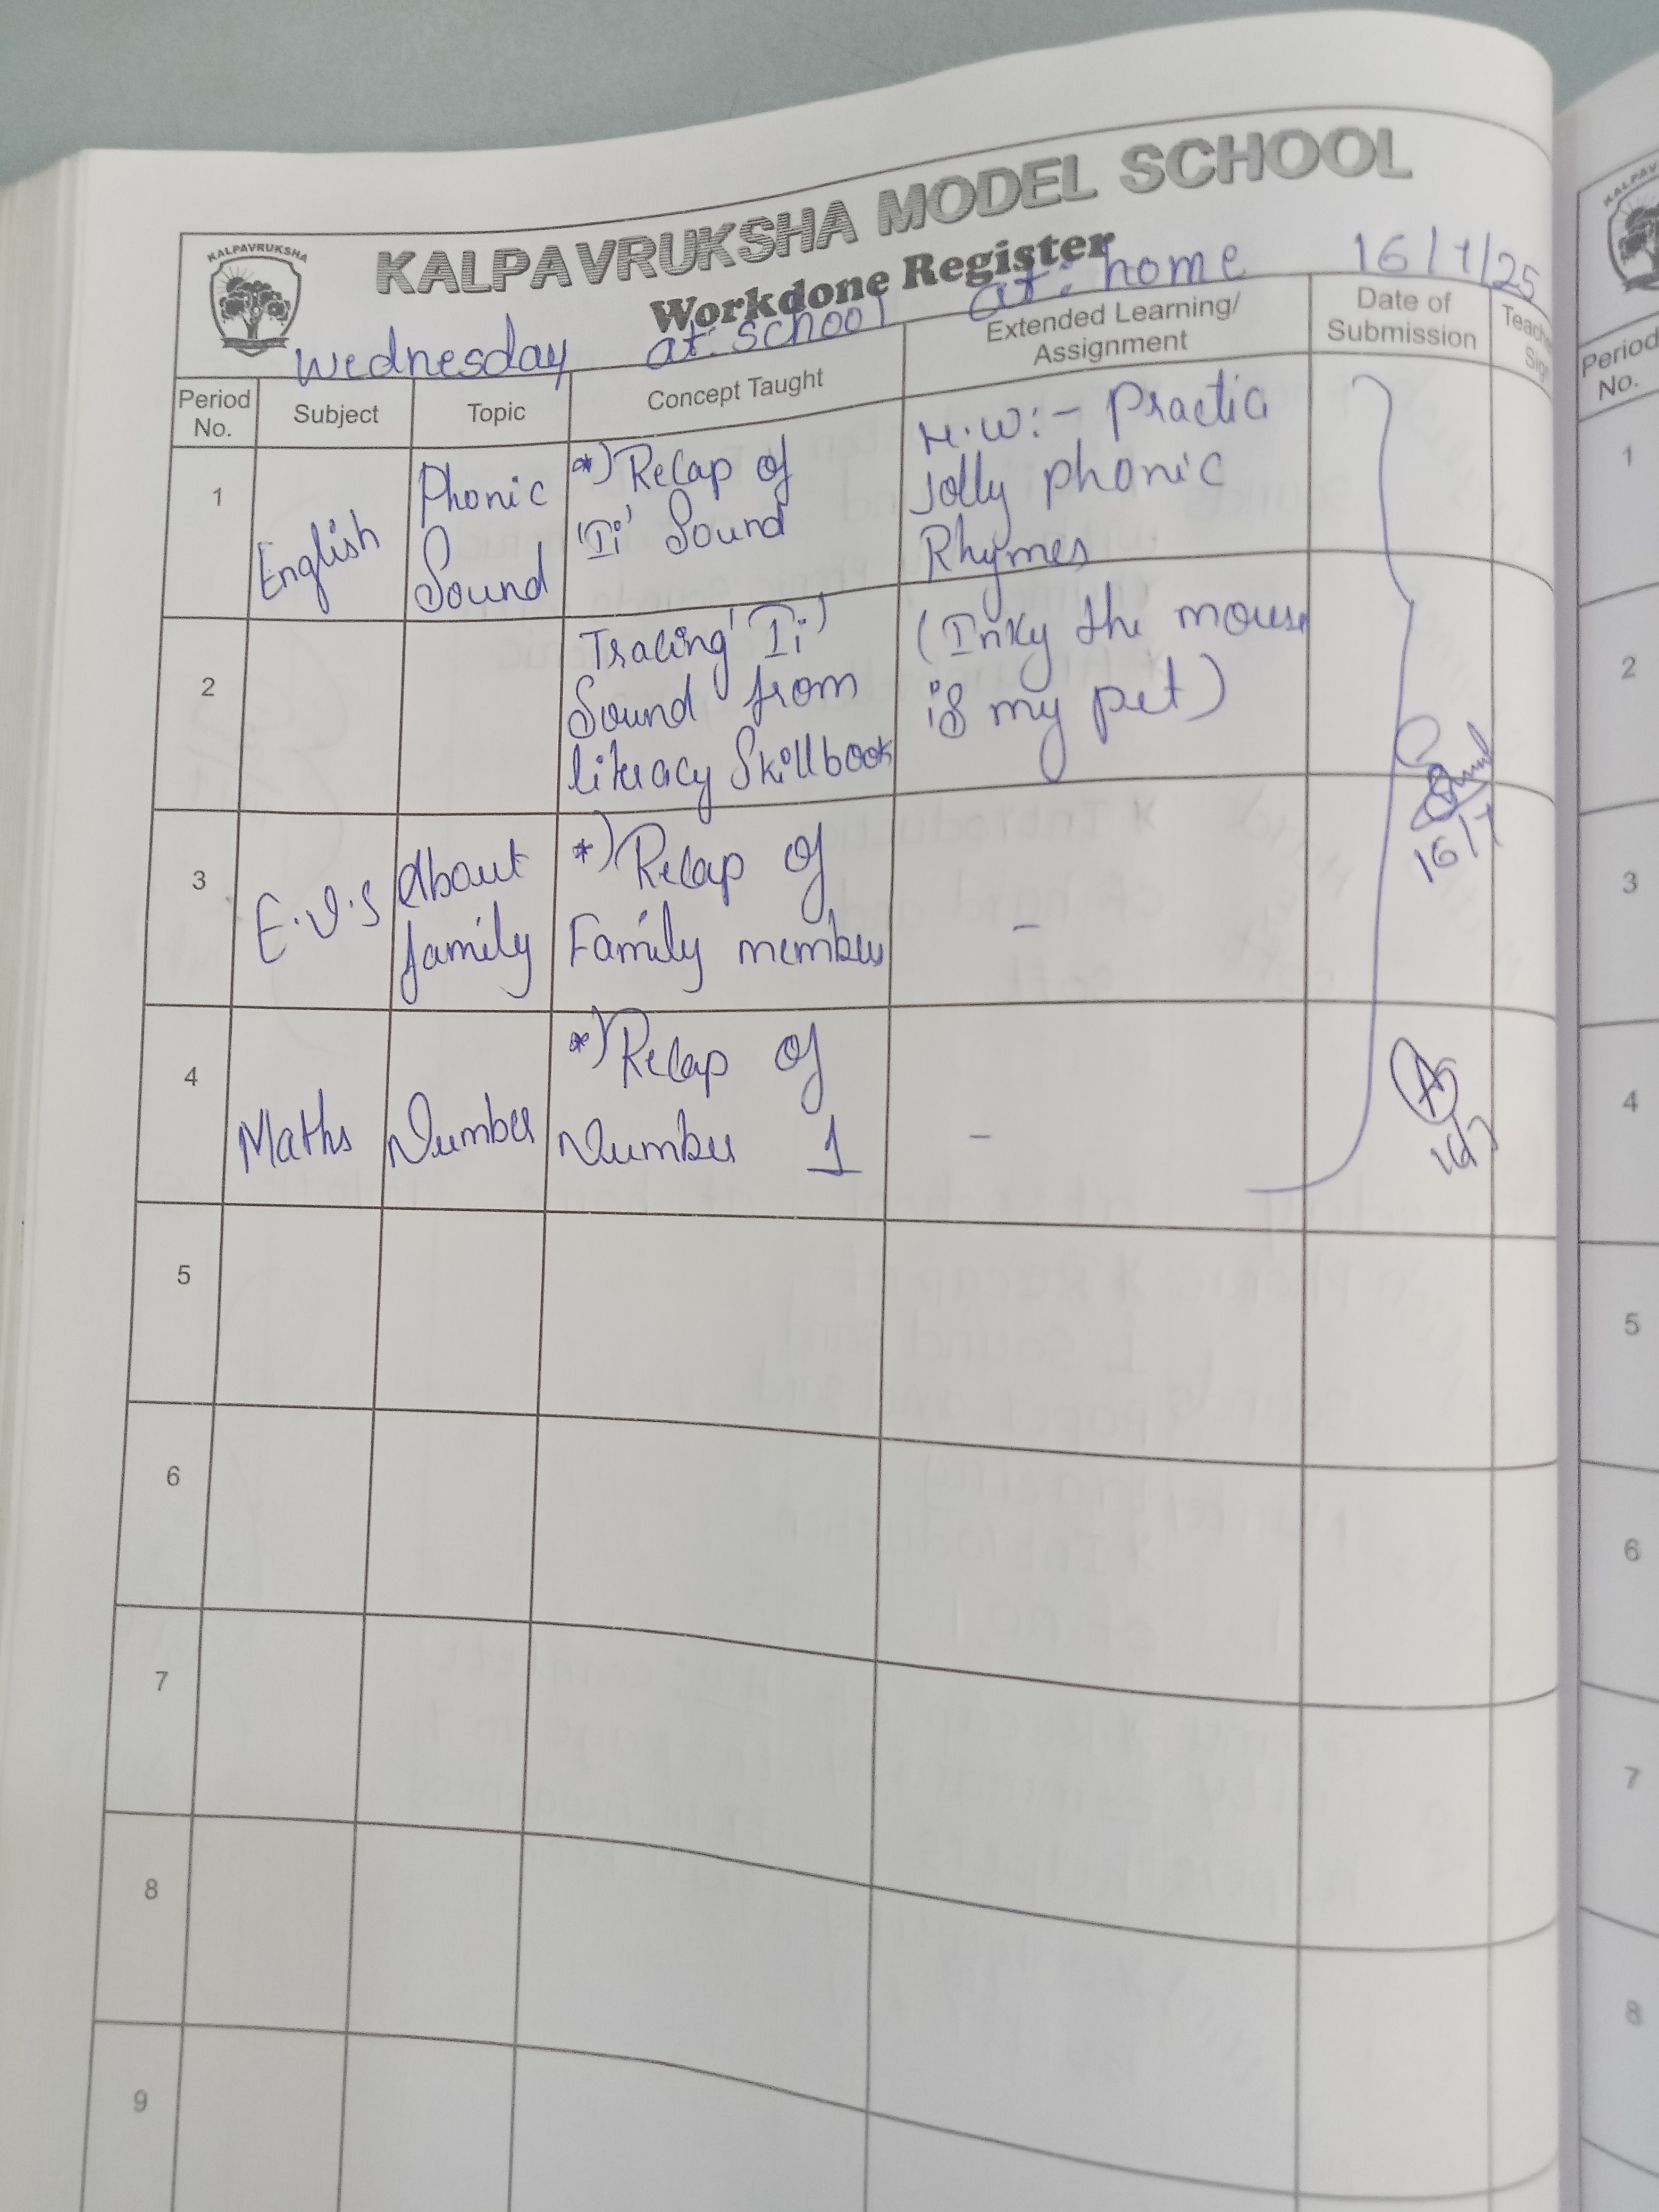 KALPAVRUKSHA
KALPAVRUKSHA MODEL SCHOOL
Workdone Register
Wednesday at: school at: home 16/7/25
Period No. Subject Topic Concept Taught Extended Learning/ Assignment Date of Submission
1 English Phonic Sound *) Recap of 'Ii' Sound H.W:- Practic Jolly phonic Rhymes
2 Tracing 'Ii' Sound from literacy Skillbook (Inky the mouse is my pet)
16/7
3 E.V.S About family *) Recap of Family members -
4 Maths Number *) Recap of Number 1 -
16/7
5
6
7
8
9
Period No.
1
2
3
4
5
6
7
8